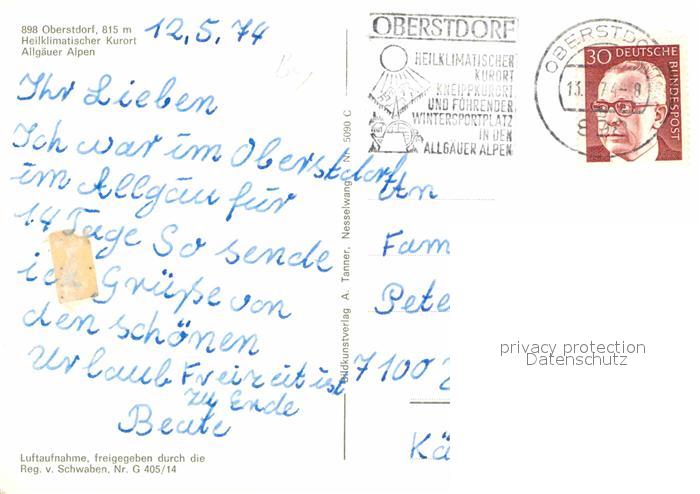 898 Oberstdorf, 815 m
Heilklimatischer Kurort
Allgäuer Alpen
12.5.74
Ihr Lieben
Ich war im Oberstdorf
im Allgäu für
14 Tage So sende
ich Grüße von
den schönen
Urlaub Freizeit ist
zu Ende
Beate
Luftaufnahme, freigegeben durch die
Reg. v. Schwaben, Nr. G 405/14
Bildkunstverlag A. Tanner, Nesselwang Nr. 5090 C
OBERSTDORF
HEILKLIMATISCHER
KURORT
KNEIPPKURORT
UND FÜHRENDER
WINTERSPORTPLATZ
IN DEN
ALLGÄUER ALPEN
OBERSTDO
898
30 DEUTSCHE
BUNDESPOST
An
Fam
Pete
7100
Kä
privacy protection
Datenschutz